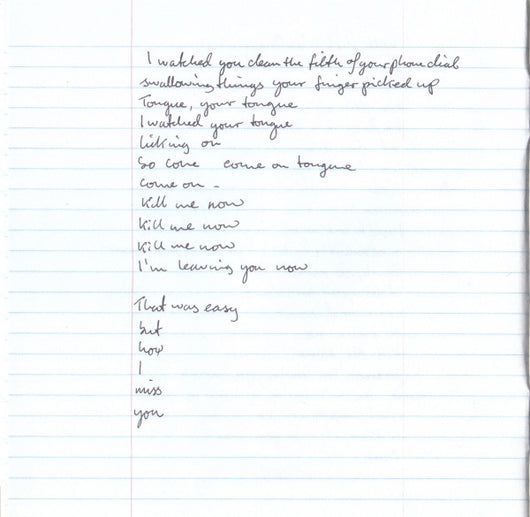 I watched you clean the filth of your phone dial
swallowing things your finger picked up
Tongue, your tongue
I watched your tongue
licking on
So come come on tongue
come on -
Kill me now
Kill me now
Kill me now
I'm leaving you now
That was easy
but
how
I
miss
you